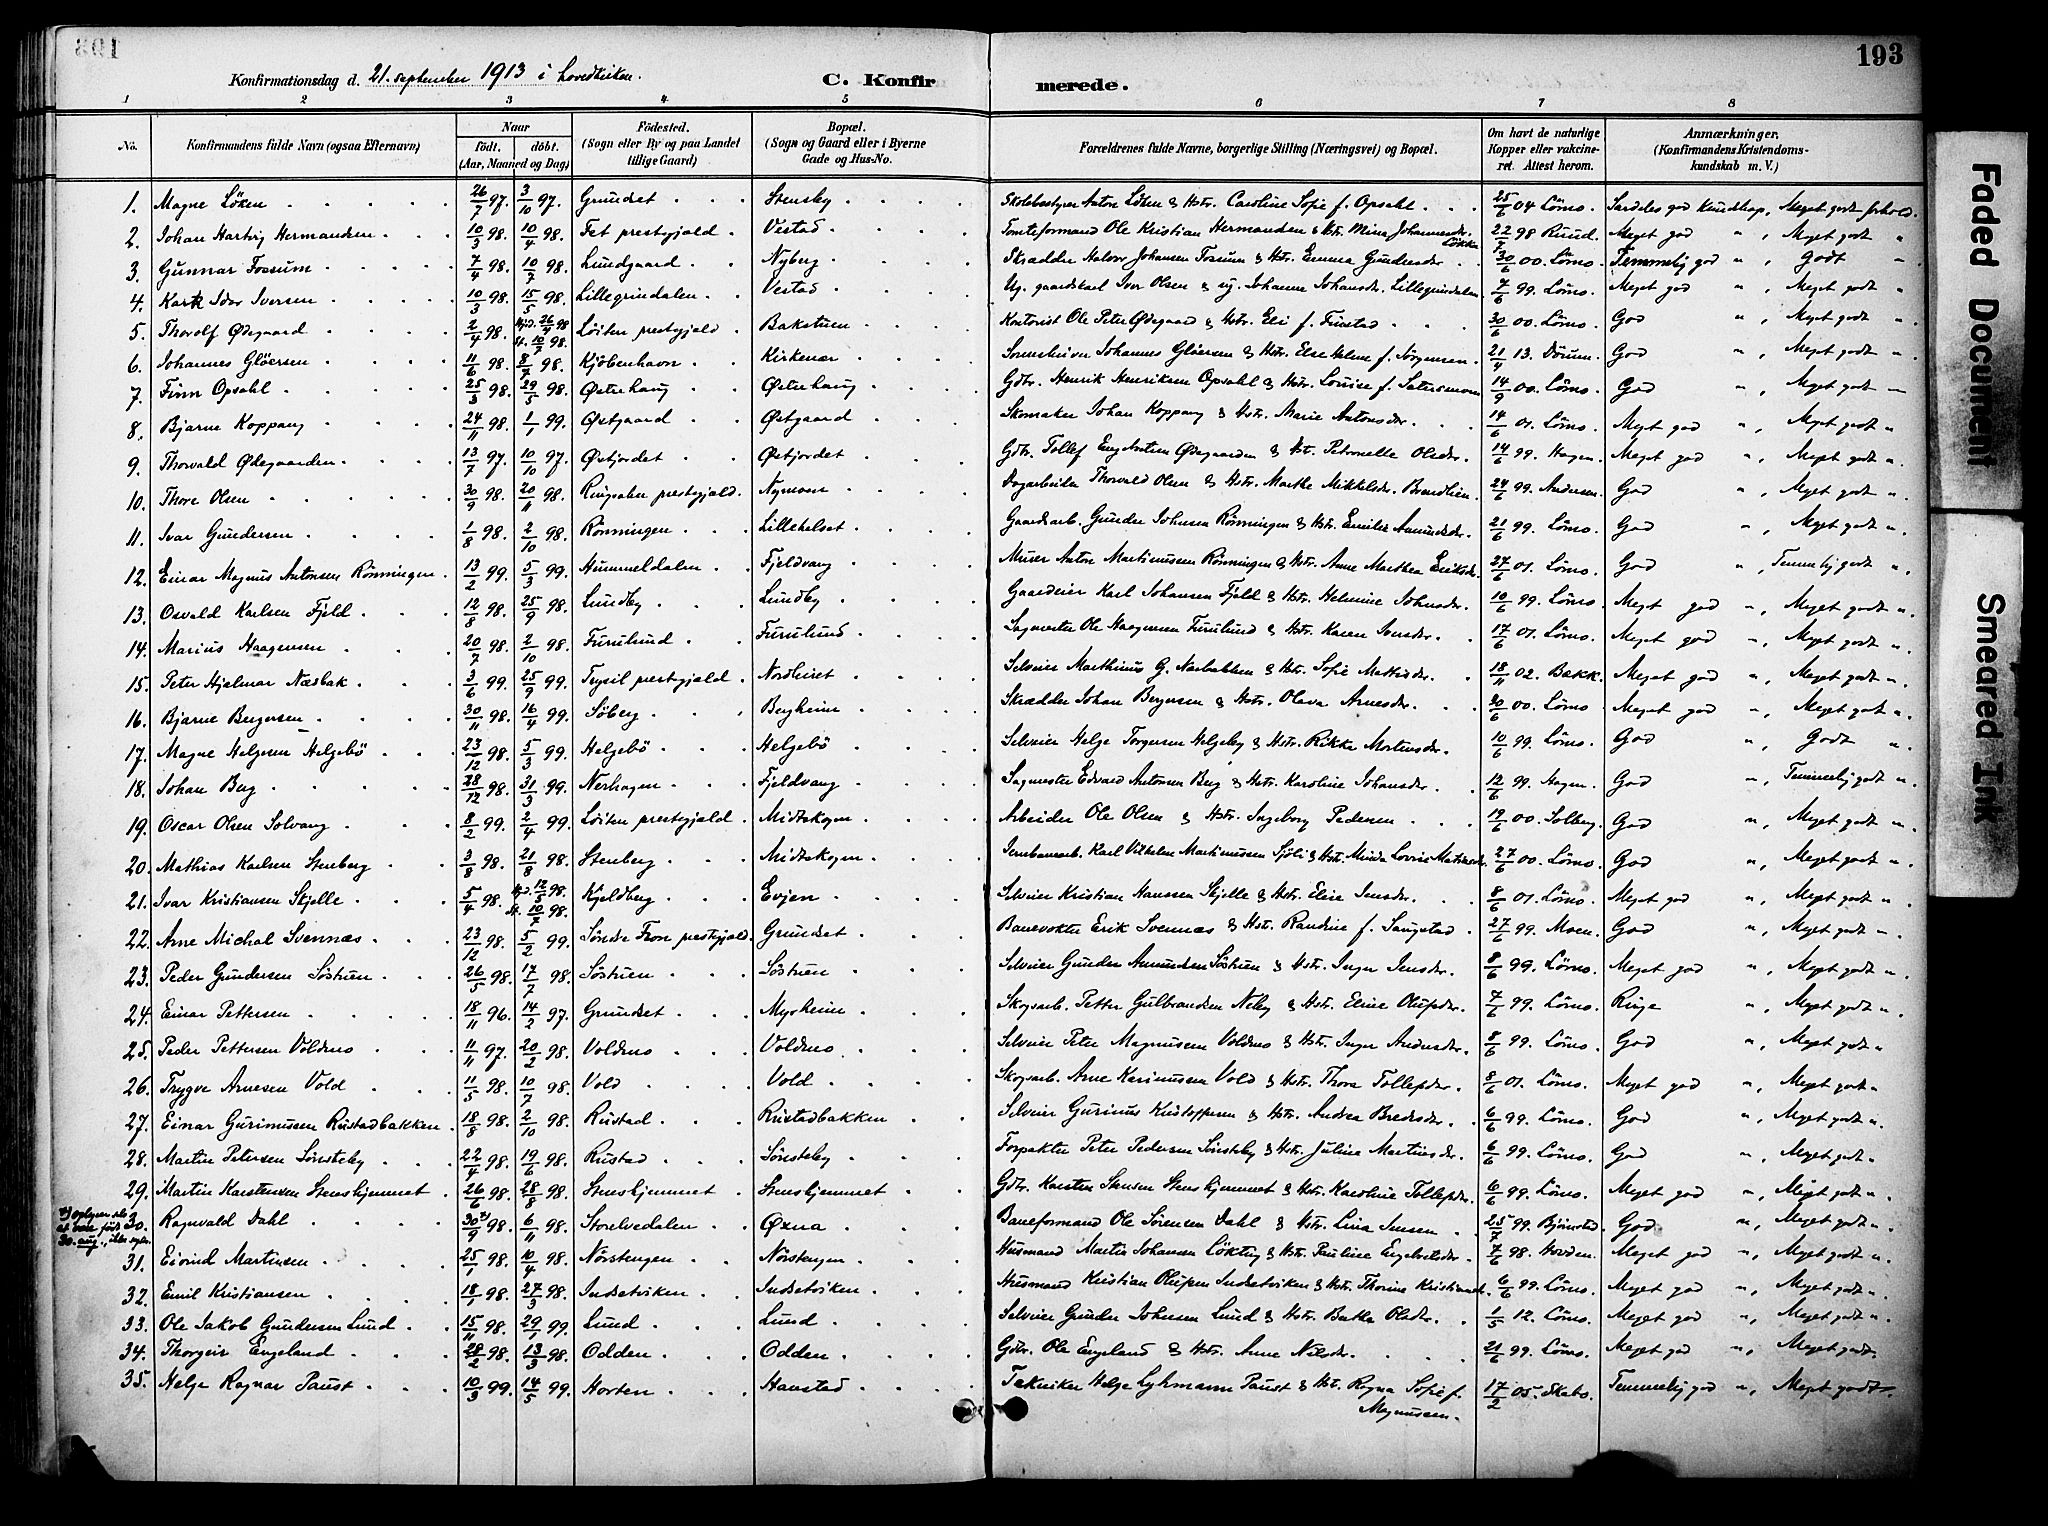 193
Konfirmationsdag d. 21. september 1913 i hovedkirken.
C. Konfirmerede.
1 2 3 4 5 6 7 8
No. Konfirmandens fulde Navn (ogsaa Efternavn) Naar født. døbt. (Aar, Maaned og Dag) Fødested. (Sogn eller By og paa Landet tillige Gaard) Bopæl. (Sogn og Gaard eller i Byerne Gade og Hus-No. Forældrenes fulde Navne, borgerlige Stilling (Næringsvei) og Bopæl. Om havt de naturlige Kopper eller vakcineret. Attest herom. Anmærkninger. (Konfirmandens Kristendomskundskab m. V.)
1. Magne Löken 26/7 97. 3/10 97. Grundset Stensby Skolebestyrer Anton Löken & Hstr. Caroline Sofie f. Opsahl 25/6 04 Lömo. Særdeles god kundskap, Meget godt forhold.
2. Johan Hartvig Hermansen 10/3 98. 10/4 98. Fet prestegjeld Vestad Tomteformand Ole Kristian Hermansen & Hstr. Mina Johannesdr. Løkka 22/7 98 Ruud. Meget god " , Meget godt "
3. Gunnar Fossum 7/4 98. 10/7 98. Lundgaard Nyberg Skrædder Halvor Johansen Fossum & Hstr. Emma Gundersdr. 30/6 00. Lömo. Temmelig god " , Godt "
4. Karl Idar Iversen 10/3 98. 15/5 98. Lillegrindalen Vestad Ug. gaardskarl Iver Olsen & ug. Johanne Johansdr. Lillegrindalen 7/6 99. Lömo. Meget god " , Meget godt "
5. Thorolf Ødegaard 2/4 98. Hjd. 26/4 98 st. 10/7 98. Löiten prestegjeld Bakstuen Kontorist Ole Peter Ødegaard & Hstr. Eli f. Finstad 30/6 00. Lömo. God " , Meget godt "
6. Johannes Glöersen 11/6 98. 8/7 98. Kjöbenhavn Kirkenær Sorenskriver Johannes Glöersen & Hstr. Else Helene f. Jörgensen 21/4 13. Dörum. God " , Meget godt "
7. Finn Opsahl 25/3 98. 29/5 98. Østerhaug Østerhaug Gdbr. Henrik Henriksen Opsahl & Hstr. Louise f. Sætersmoen 14/9 00. Lömo. God " , Meget godt "
8. Bjarne Koppang 24/11 98. 1/1 99. Østgaard Østgaard Skomaker Johan Koppang & Hstr. Marie Antonsdr. 14/6 01. Lömo. Meget god " , Meget godt "
9. Thorvald Ødegaarden 13/7 97. 10/10 97. Østjordet Østjordet Gdbr. Tollef Engebretsen Ødegaarden & Hst. Petronelle Olsdr. 14/6 99. Hagen. Meget god " , Meget godt "
10. Thore Olsen 30/9 98. 20/11 98. Ringsaker prestegjeld. Nymoen Dagarbeider Thorvald Olsen & Hstr. Marthe Mikkelsdr. Brændlien 24/6 99. Andersen. God " , Meget godt "
11. Ivar Gundersen 1/8 98. 2/10 98. Rönningen Lillehelset Gaardsarb. Gunder Johnsen Rönningen & Hstr. Emilie Amundsdr. 21/6 99. Lömo. God " , Meget godt "
12. Einar Magnus Antonsen Rönningen 13/2 99. 5/3 99. Hummeldalen Fjeldvang Murer Anton Martinussen Rönningen & Hstr. Anne Marthea Eriksdr. 27/6 01. Lömo. God " , Temmelig godt "
13. Osvald Karlsen Fjeld 12/8 98. 25/9 98. Lundby Lundby Gaardeier Karl Johansen Fjeld & Hstr. Helmine Johnsdr. 10/6 99. Lömo. Meget god " , Meget godt "
14. Marius Haagensen 20/7 98. 2/10 98. Furulund Furulund Sagmester Ole Haagensen Furulund & Hstr. Karen Iversdr. 17/6 01. Lömo. Meget god " , Meget godt "
15. Peter Hjalmar Næsbak 3/6 99. 25/9 99. Trysil prestegjeld Nordhuset Selveier Marthinus G. Næsbakken & Hstr. Sofie Mathisdr. 18/11 02. Bækk. Meget god " , Meget godt "
16. Bjarne Bergersen 30/11 98. 16/4 99. Söberg Bergheim Skrædder Johan Bergersen & Hstr. Olava Arnesdr. 30/6 00. Lömo Meget god " , Meget godt "
17. Magne Helgesen Helgebö 23/12 98. 5/3 99. Helgebö Helgebö Selveier Helge Torgersen Helgeby & Hstr. Rikke Mortensdr. 10/6 99. Lömo. God " , Godt "
18. Johan Berg 28/12 98. 31/3 99. Nerhagen Fjeldvang Sagmester Edvard Antonsen Berg & Hstr. Karoline Johansdr. 12/6 99. Hagen. God " , Temmelig godt "
19. Oscar Olsen Solvang 8/2 99. 2/4 99. Löiten prestegjeld Midtskogen Arbeider Ole Olsen & Hstr. Ingeborg Pedersen 19/6 00. Solberg. God " , Meget godt "
20. Mathias Karlsen Stenberg 3/8 98. 21/8 98. Stenberg Midtskogen Jernbanearb. Karl Vilhelm Martinussen Sjöli & Hstr. Minda Lovise Mathisdr. 27/6 00. Lömo. God " , Meget godt "
21. Ivar Kristiansen Skjelle 5/4 98. Hjd. 12/5 98. st. 10/7 98. Kjeldberg Evjen Selveier Kristian Hanssen Skjelle & Hstr. Elise Jensdr. 8/6 01. Lömo. Meget god " , Meget godt "
22. Arne Michal Svennæs 23/12 98. 5/2 99. Söndre Fron prestegjeld. Grundset Banevokter Erik Svennæs & Hstr. Randine f. Saugstad 27/6 99. Moen. God " , Meget godt "
23. Peder Gundersen Söstuen 26/5 98. 17/7 98. Söstuen Söstuen Selveier Gunder Amundsen Söstuen & Hstr. Inger Jensdr. 8/6 99. Lömo. Meget god " , Meget godt "
24. Einar Pettersen 18/11 96. 14/2 97. Grundset Myrheim Skogsarb. Petter Gulbrandsen Neby & Hstr. Eline Olufsdr. 7/6 99. Lömo. Ringe " , Meget godt "
25. Peder Pettersen Voldmo 11/11 97. 20/2 98. Voldmo Voldmo Selveier Peter Magnussen Voldmo & Hstr. Inger Andersdr. 8/6 99. Lömo. God " , Meget godt "
26. Trygve Arnesen Vold 11/5 98. 10/7 98. Vold Vold Skogsarb. Arne Karinussen Vold & Hstr. Thora Tollefsdr. 8/6 01. Lömo. Meget god " , Meget godt "
27. Einar Gurinussen Rustadbakken 18/8 98. 2/10 98. Rustad Rustadbakken Selveier Gurinus Kristoffersen & Hstr. Andrea Bredesdr. 6/6 99. Lömo. God " , Meget godt "
28. Martin Petersen Sönsteby 22/4 98. 19/6 98. Rustad Sönsteby Forpakter Peter Pedersen Sönsteby & Hstr. Juline Martinsdr. 6/6 99. Lömo. God " , Meget godt "
29. Martin Karstensen Stenshjemmet 26/6 98. 28/8 98. Stenshjemmet Stenshjemmet Gdbr. Karsten Stensen Stenshjemmet & Hstr. Karoline Tollefsdr. 6/6 99. Lömo. Meget god " , Meget godt "
*) oplyser selv at være født 30. aug., ikke septbr.
30. Ragnvald Dahl 30/9 *) 98 6/11 98. Storelvedalen Øxna Baneformand Ole Sörensen Dahl & Hstr. Lina Jensen 25/7 99. Björnstad God " , Meget godt "
31. Eivind Martinsen 25/1 98. 10/4 98. Nörstengen Nörstengen Husmand Martin Johansen Lökting & Hstr. Pauline Engebretsdr. 7/6 98. Hovden. Meget god " , Meget godt "
32. Emil Kristiansen 18/1 98. 27/3 98. Indsetviken Indsetviken Husmand Kristian Olufsen Indsetviken & Hstr. Thorine Kristiansdr. 6/6 99. Lömo. Meget god " , Meget godt "
33. Ole Jakob Gundersen Lund 15/11 98. 29/1 99. Lund Lund Selveier Gunder Johnsen Lund & Hstr. Berthe Olsdr. 1/5 12. Lömo. Meget god " , Meget godt "
34. Thorgeir Engeland 28/2 98. 13/3 98. Odden Odden Gdbr. Ole Engeland & Hstr. Anne Nilsdr. 21/6 99. Lömo. Meget god " , Meget godt.
35. Helge Ragnar Paust 10/3 99. 14/5 99. Horten Hanstad Tekniker Helge Lyhmann Paust & Hst. Ragna Sofie f. Magnussen. 17/2 05. Skabo. Temmelig god " , Meget godt "
Faded Document
Smeared Ink